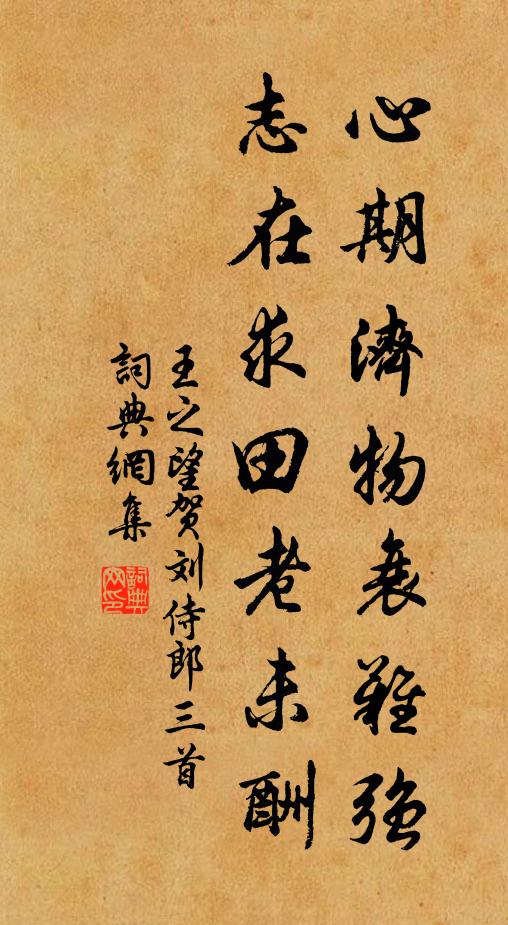 心期濟物衰難強
志在求田老未酬
王之望賀刘侍郎三首
詞典網集
詞典网印